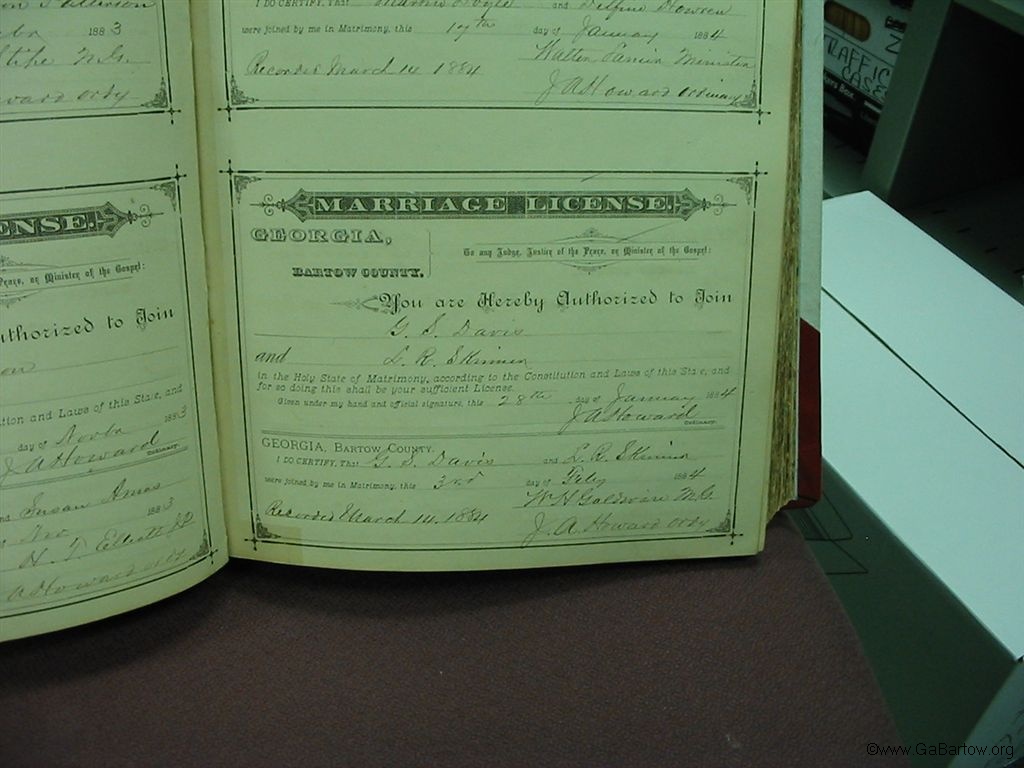 1883
1883
1883
NSE.
Peace, or Minister of the Gospel:
uthorized to Join
tion and Laws of this State, and
day of Novbr 1883
J A Howard
Ordinary.
Susan Amos
1883
A Howard ordy
I DO CERTIFY, That and
were joined by me in Matrimony, this 17th day of January 1884
Minister
Recorded March 14 1884
J A Howard ordinary
MARRIAGE LICENSE.
GEORGIA,
BARTOW COUNTY.
To any Judge, Justice of the Peace, or Minister of the Gospel:
You are Hereby Authorized to Join
G. S. Davis
and L. R. Skinner
in the Holy State of Matrimony, according to the Constitution and Laws of this State, and
for so doing this shall be your sufficient License.
Given under my hand and official signature, this 28th day of January 1884
J A Howard
Ordinary.
GEORGIA, BARTOW COUNTY.
I DO CERTIFY, That G. S. Davis and L. R. Skinner
were joined by me in Matrimony, this 3rd day of Feby 1884
W H M.G.
Recorded March 14, 1884
J. A. Howard ordy
TRAFFIC
CASE
©www.GaBartow.org